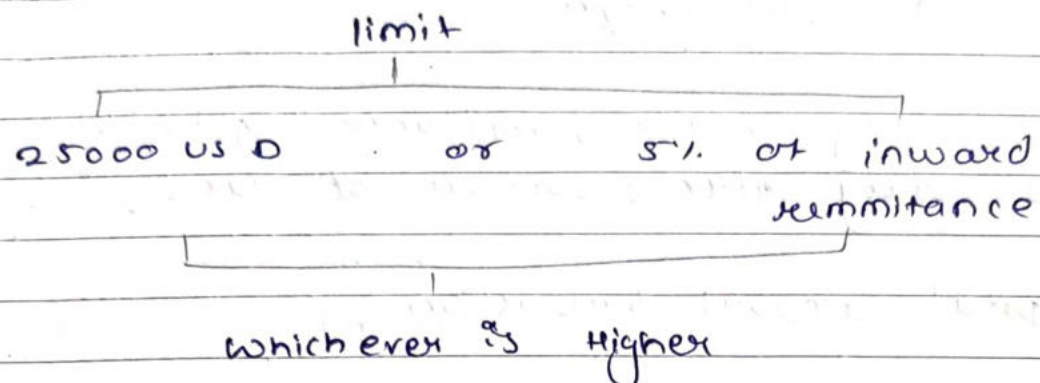 limit
25000 USD or 5%. of inward
remmitance
whichever is Higher